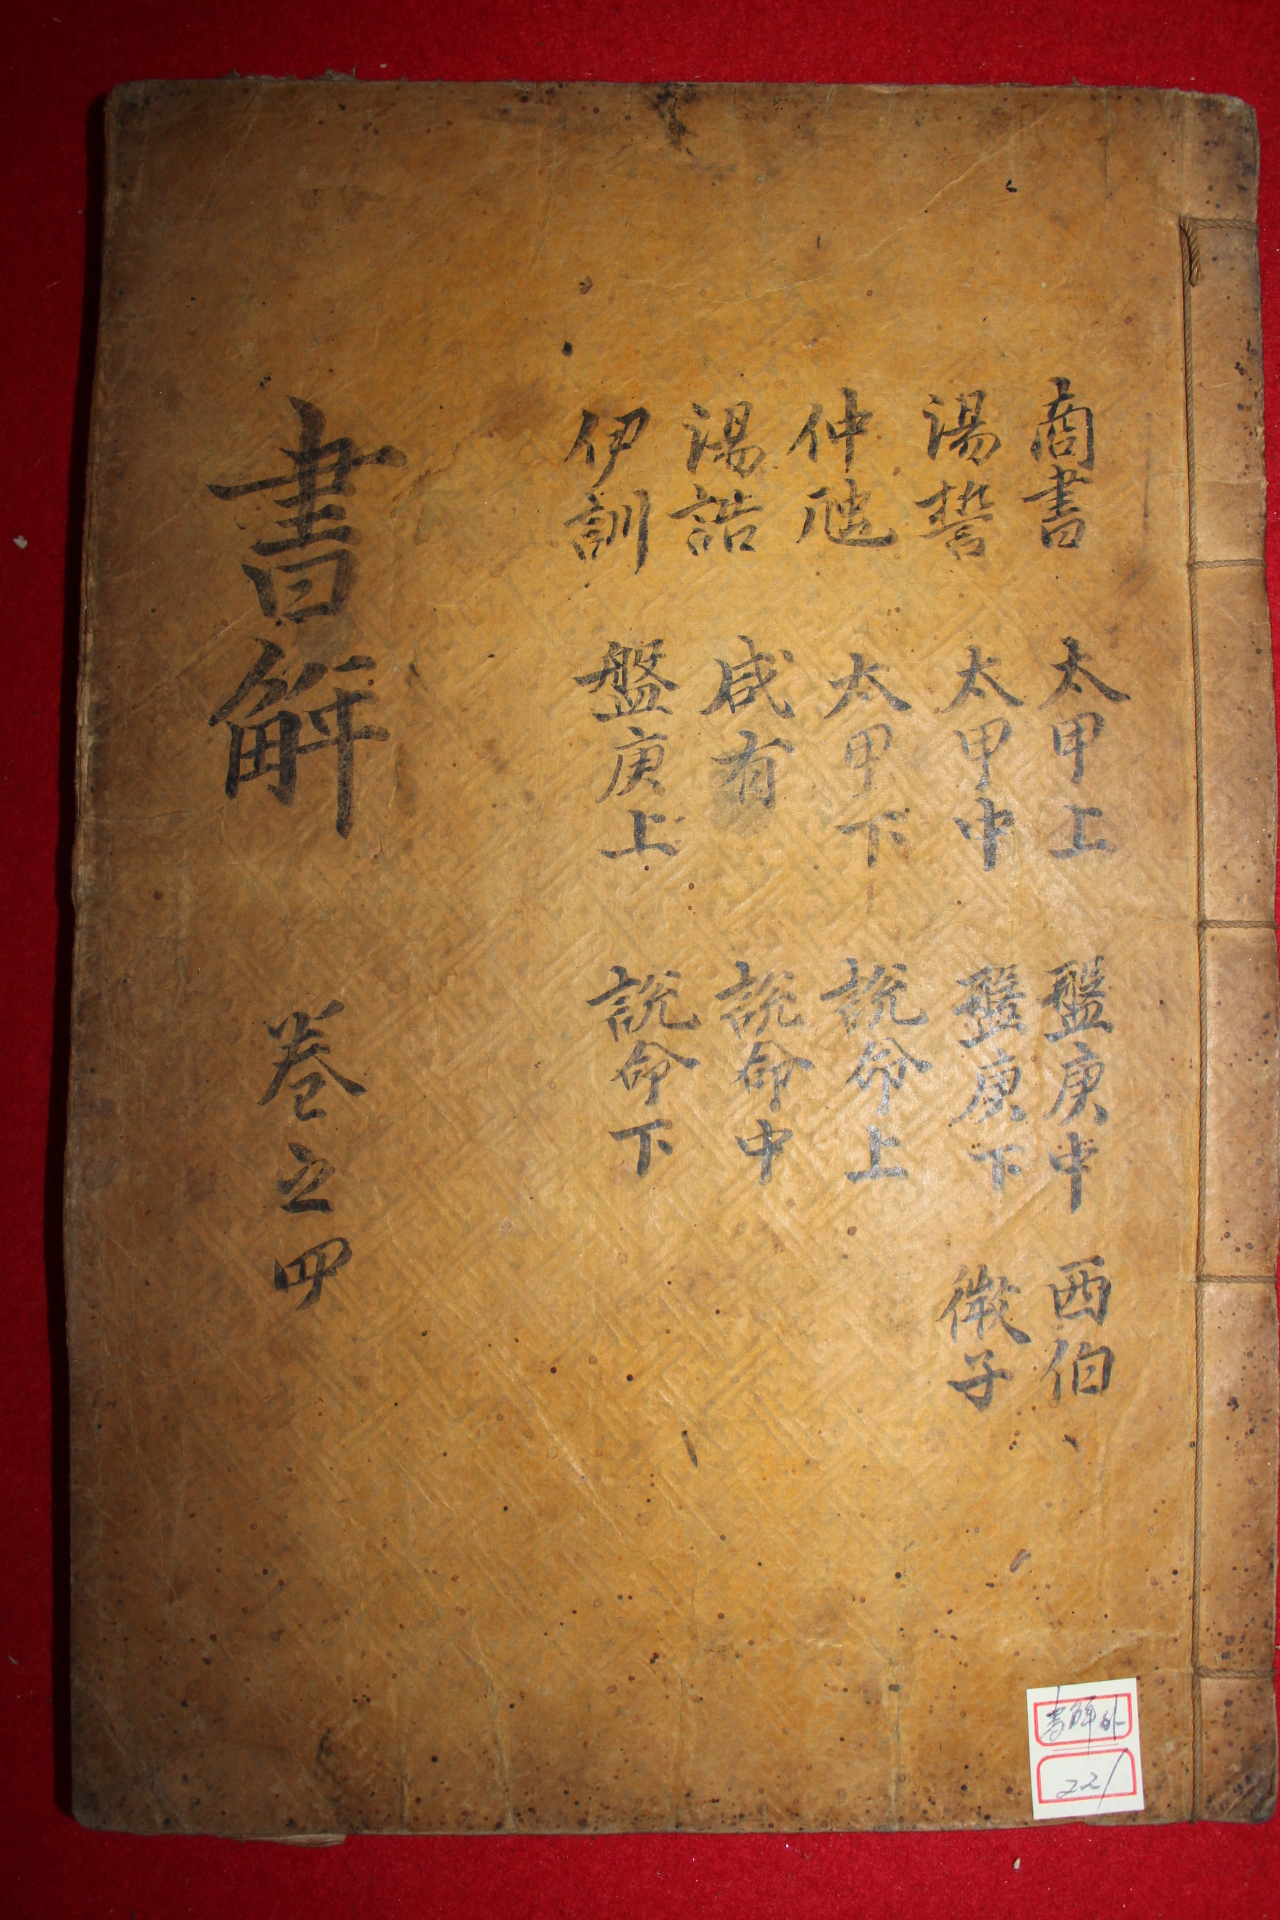 商書
湯誓
仲虺
湯誥
伊訓
太甲上
太甲中
太甲下
咸有
盤庚上
盤庚中
盤庚下
說命上
說命中
說命下
西伯
微子
書解 卷之四
221